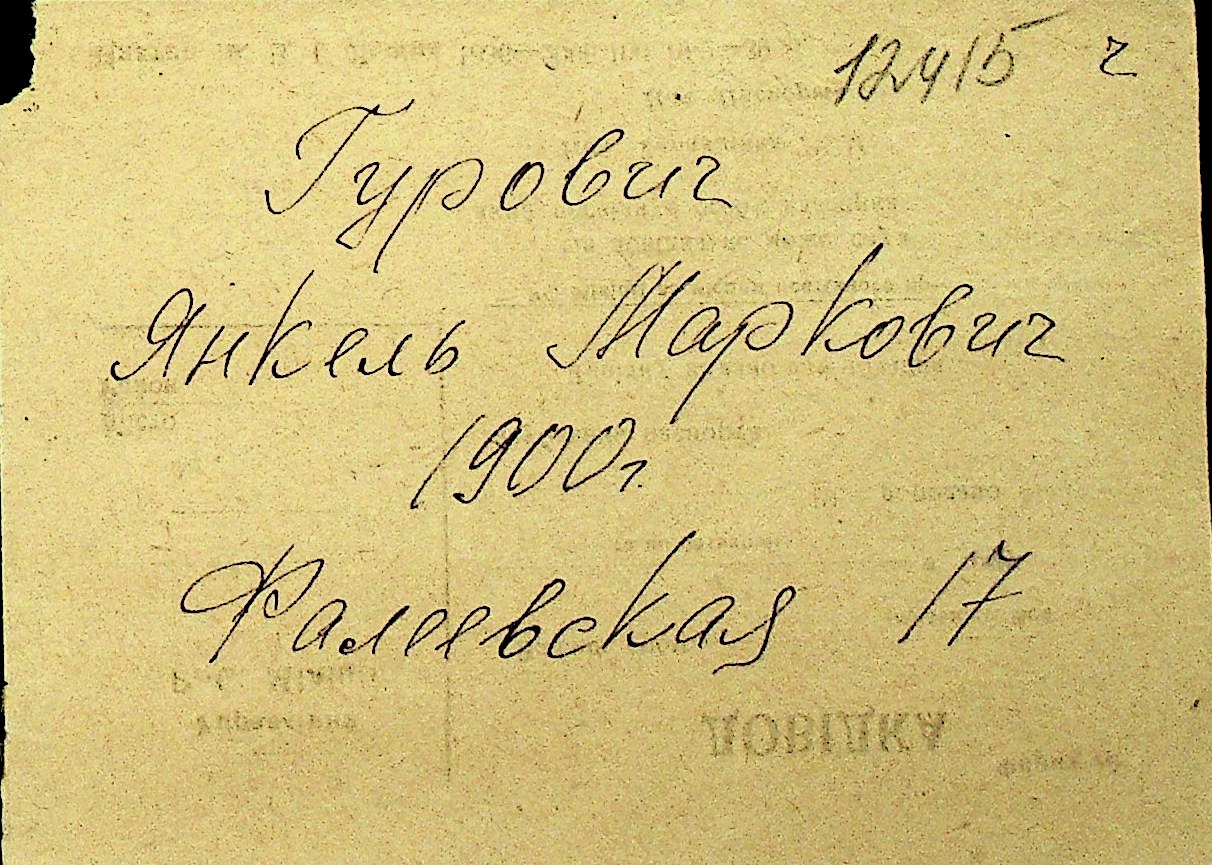 12415 ч
Гурович
Янкель Маркович
1900г.
Фалеевская 17
ДОВІДКА